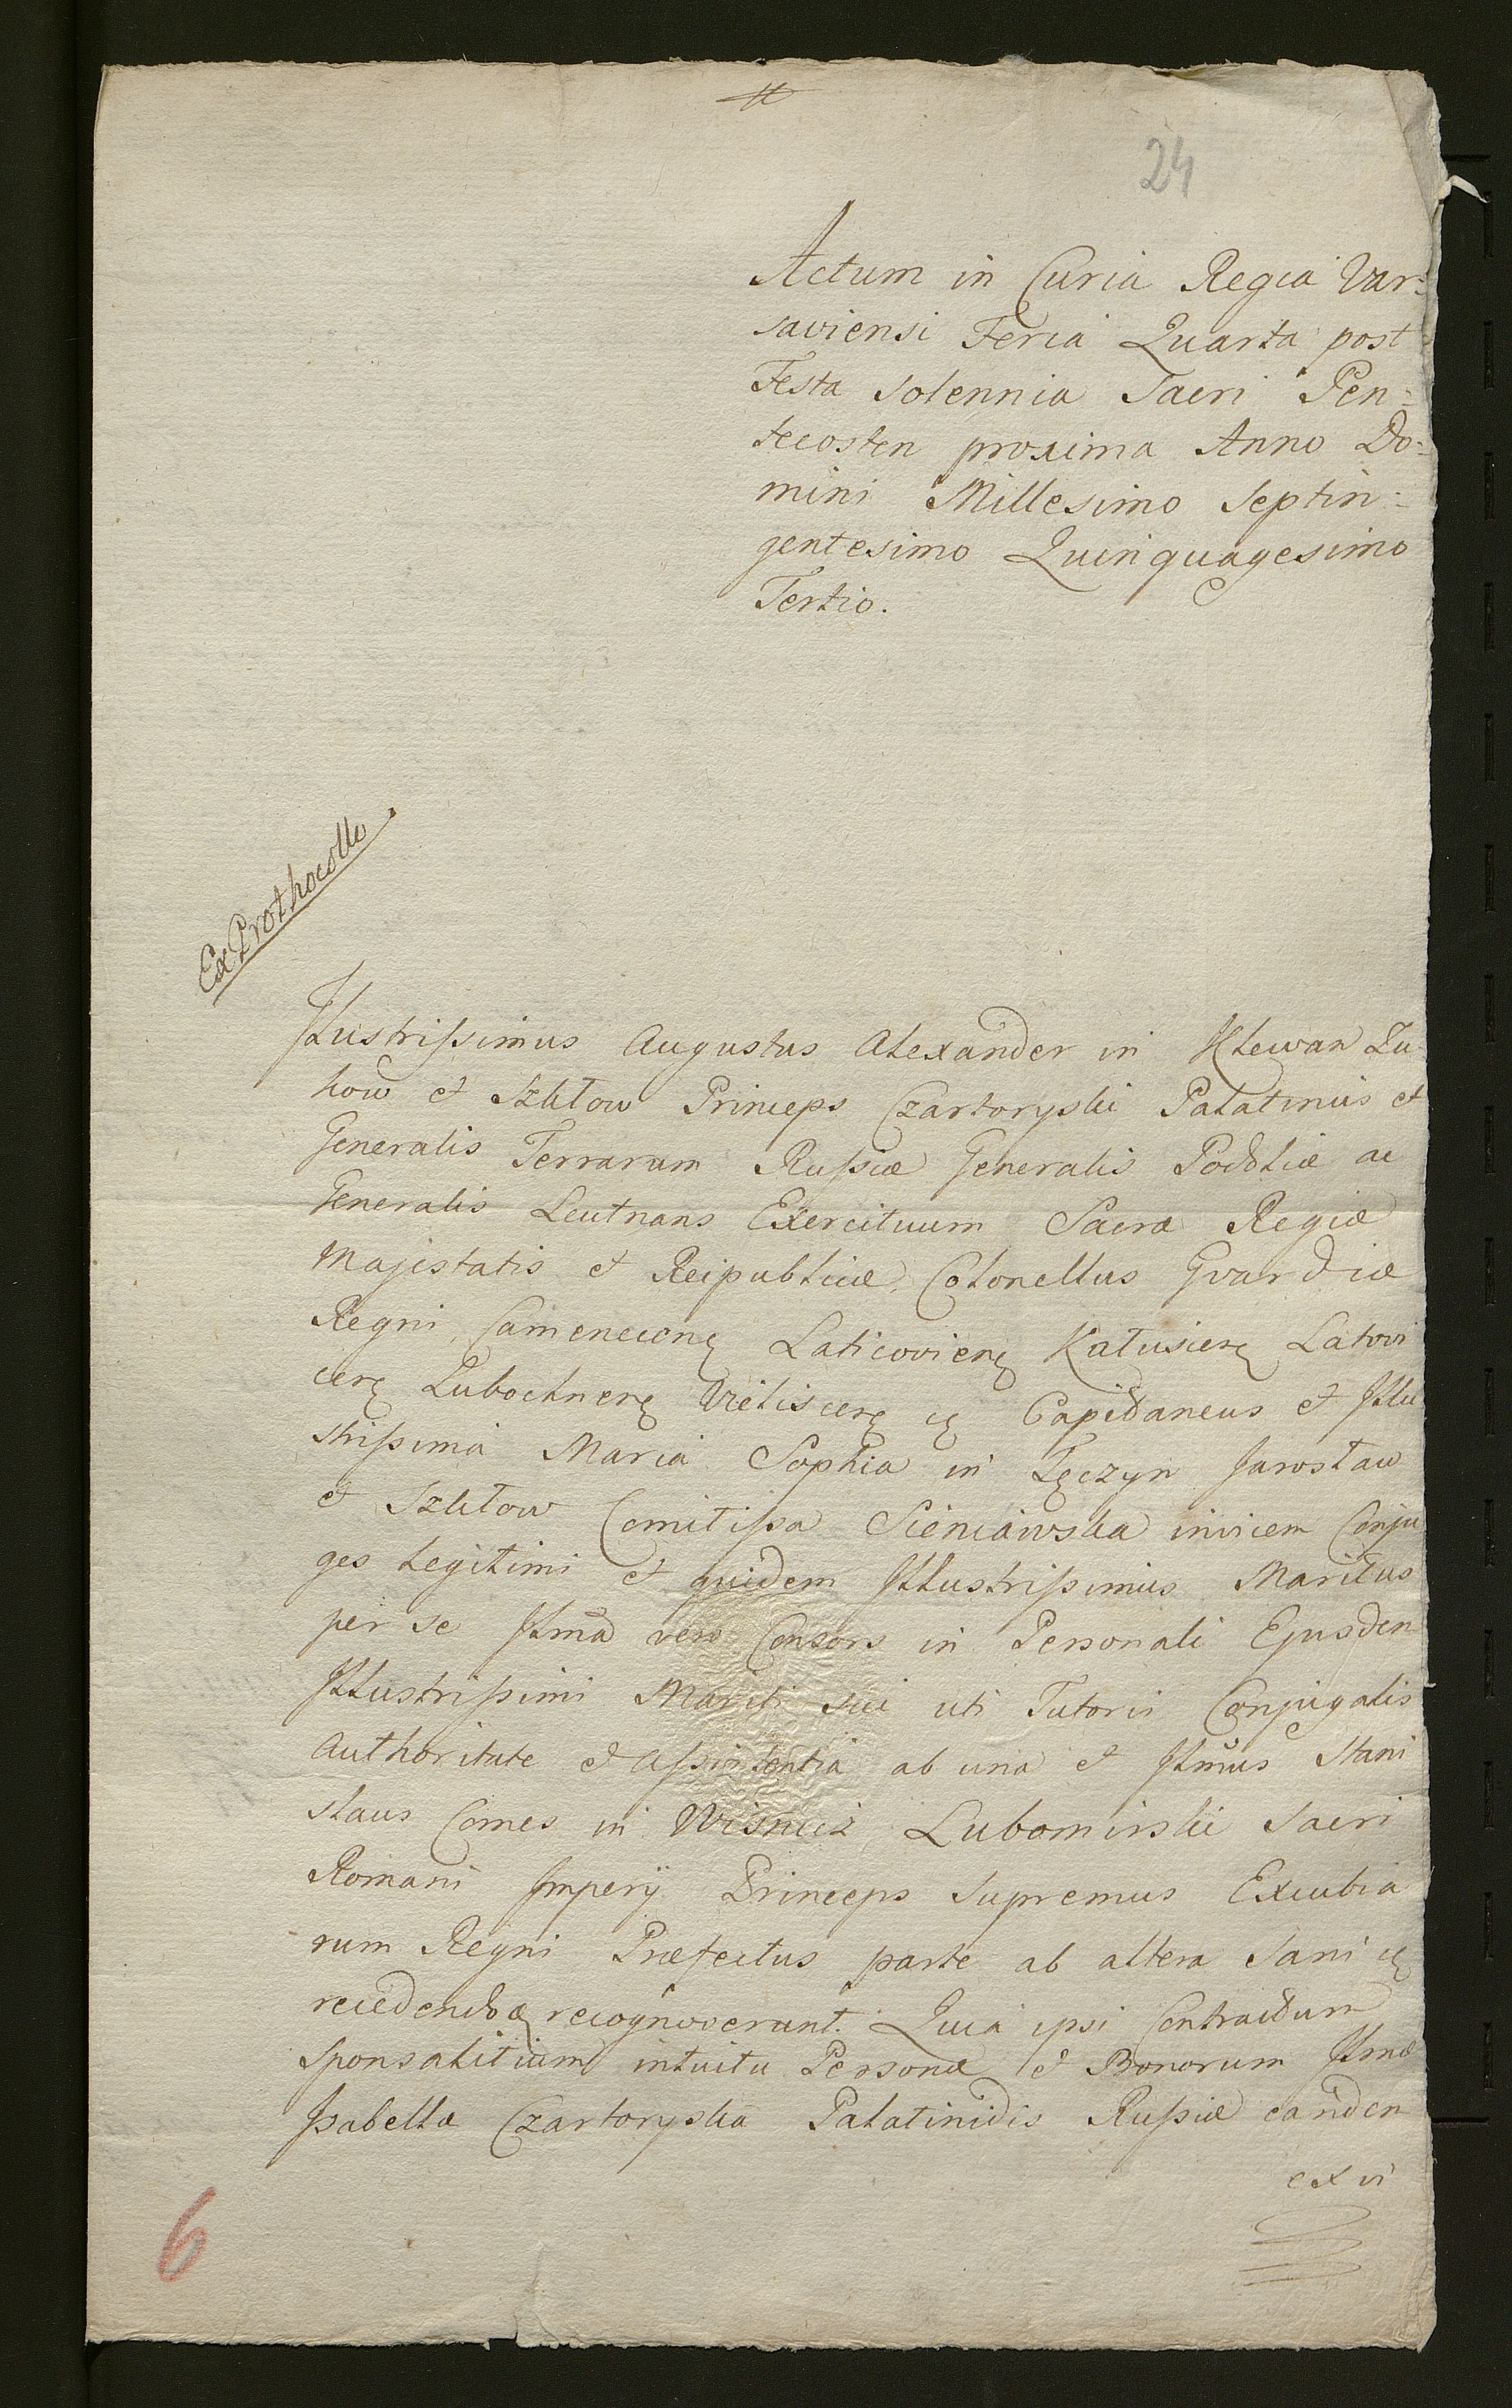 24
Actum in Curia Regia Var=
saviensi Feria Quarta post
Festa Solennia Sacri Pen=
tecosten proxima Anno Do=
mini Millesimo Septin=
gentesimo Quinquagesimo
Tertio.
Ex Prothocollo
Illustrissimus Augustus Alexander in Klewan Zu
kow et Szkłow Princeps Czartoryski Palatinus et
Generalis Terrarum Russiæ Generalis Podoliæ ac
Generalis Leutnans Exercituum Sacræ Regiæ
Majestatis et Reipublicæ, Colonellus Gvardiæ
Regni, Camenecenę Laticovienę Kałusienę Latovi
cenę Lubochnenę Vieliscenę cę Capitaneus et Illu
strissima Maria Sophia in Tęczyn Jarosław
et Szkłow Comitissa Sieniawska invicem Conju
ges legitimi et quidem Illustrissimus Maritus
per se Illma vero Consors in Personali Ejusdem
Illustrissimi Mariti sui uti Tutoris Conjugalis
Authoritate et Assistentia ab una et Illmus Stani
slaus Comes in Wisnicz Lubomirski Sacri
Romani Imperij Princeps Supremus Excubia
rum Regni Præfectus parte ab altera Sani cę
recedendoę recognoverunt. Quia ipsi Contractum
Sponsalitium intuitu Personæ et Bonorum Illmæ
Isabellæ Czartoryska Palatinidis Russiæ eandem
ex vi
6